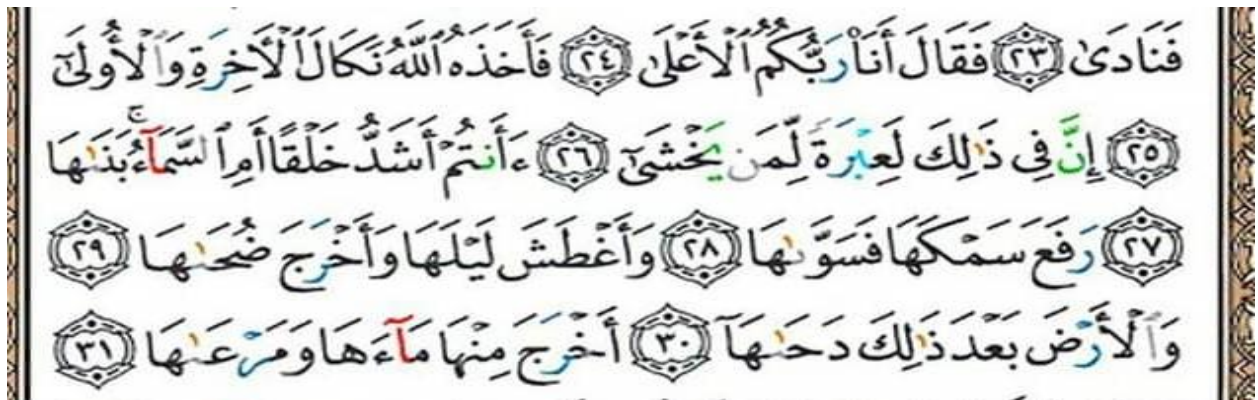 فَنَادَىٰ ﴿٢٣﴾ فَقَالَ أَنَا۠ رَبُّكُمُ ٱلْأَعْلَىٰ ﴿٢٤﴾ فَأَخَذَهُ ٱللَّهُ نَكَالَ ٱلْءَاخِرَةِ وَٱلْأُولَىٰٓ
﴿٢٥﴾ إِنَّ فِى ذَٰلِكَ لَعِبْرَةً لِّمَن يَخْشَىٰٓ ﴿٢٦﴾ ءَأَنتُمْ أَشَدُّ خَلْقًا أَمِ ٱلسَّمَآءُ ۚ بَنَىٰهَا
﴿٢٧﴾ رَفَعَ سَمْكَهَا فَسَوَّىٰهَا ﴿٢٨﴾ وَأَغْطَشَ لَيْلَهَا وَأَخْرَجَ ضُحَىٰهَا ﴿٢٩﴾
وَٱلْأَرْضَ بَعْدَ ذَٰلِكَ دَحَىٰهَآ ﴿٣٠﴾ أَخْرَجَ مِنْهَا مَآءَهَا وَمَرْعَىٰهَا ﴿٣١﴾